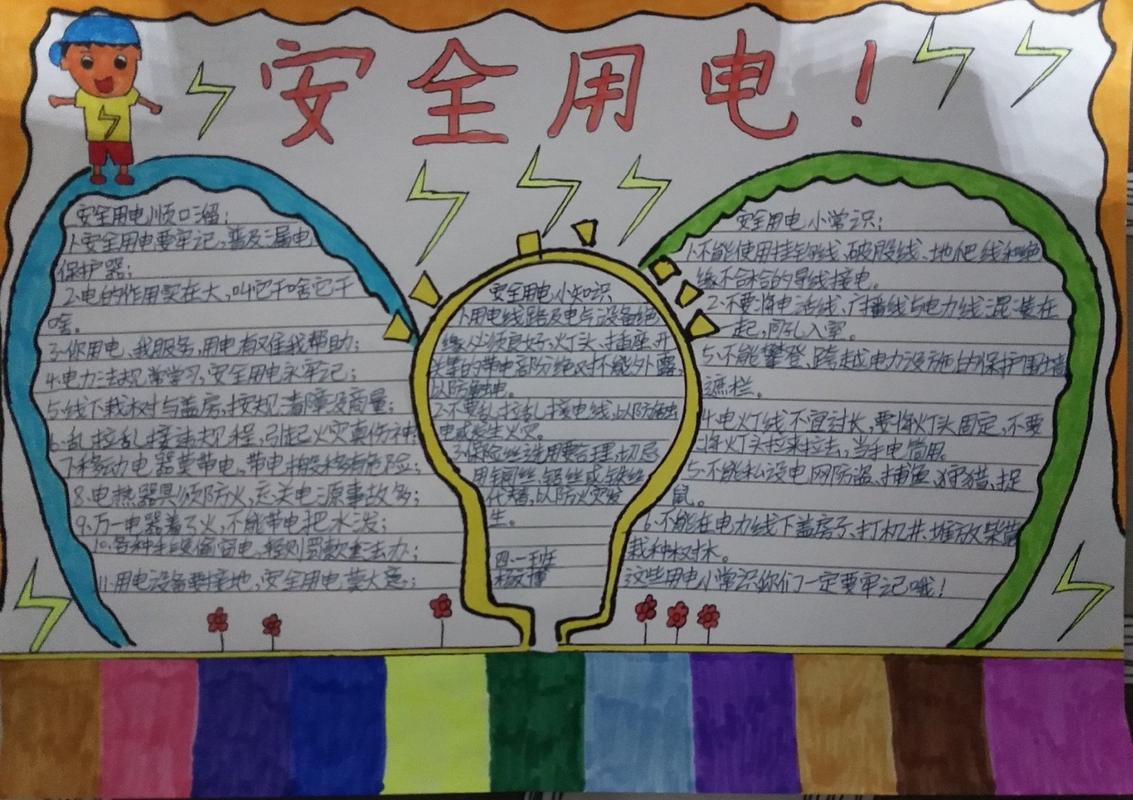 安全用电！
安全用电顺口溜：
1.安全用电要牢记，普及漏电
保护器；
2.电的作用实在大，叫它干啥它干
啥。
3.你用电、我服务，用电有难我帮助；
4.电力法规常学习，安全用电永牢记；
5.线下栽树与盖房，按规清障没商量；
6.乱拉乱接违规程，引起火灾真伤神
7.移动电器莫带电，带电搬移有危险；
8.电热器具须防火，忘关电源事故多；
9.万一电器着了火，不能带电把水泼；
10.各种手段偷窃电，轻则罚款重法办；
11.用电设备要接地，安全用电莫大意；
安全用电小知识
1.用电线路及电气设备绝
缘必须良好，灯头、插座、开
关等的带电部分绝对不能外露，
以防触电。
2.不要乱拉乱接电线，以防触
电或发生火灾。
3.保险丝选用要合理，切忌
用铜丝、铝丝或铁丝
代替，以防火灾发
生。
四·一班
安全用电小常识：
1.不能使用挂钩线、破股线、地爬线和绝
缘不合格的导线接电。
2.不要将电话线、广播线与电力线混装在
一起，同孔入室。
5.不能攀登、跨越电力设施的保护围墙
遮栏。
4.电灯线不宜过长，要将灯头固定，不要
将灯头拉来拉去，当手电筒用。
5.不能私设电网防盗、捕鱼、狩猎、捉
鼠。
6.不能在电力线下盖房子、打机井、堆放柴草
栽种树木。
这些用电小常识你们一定要牢记哦！